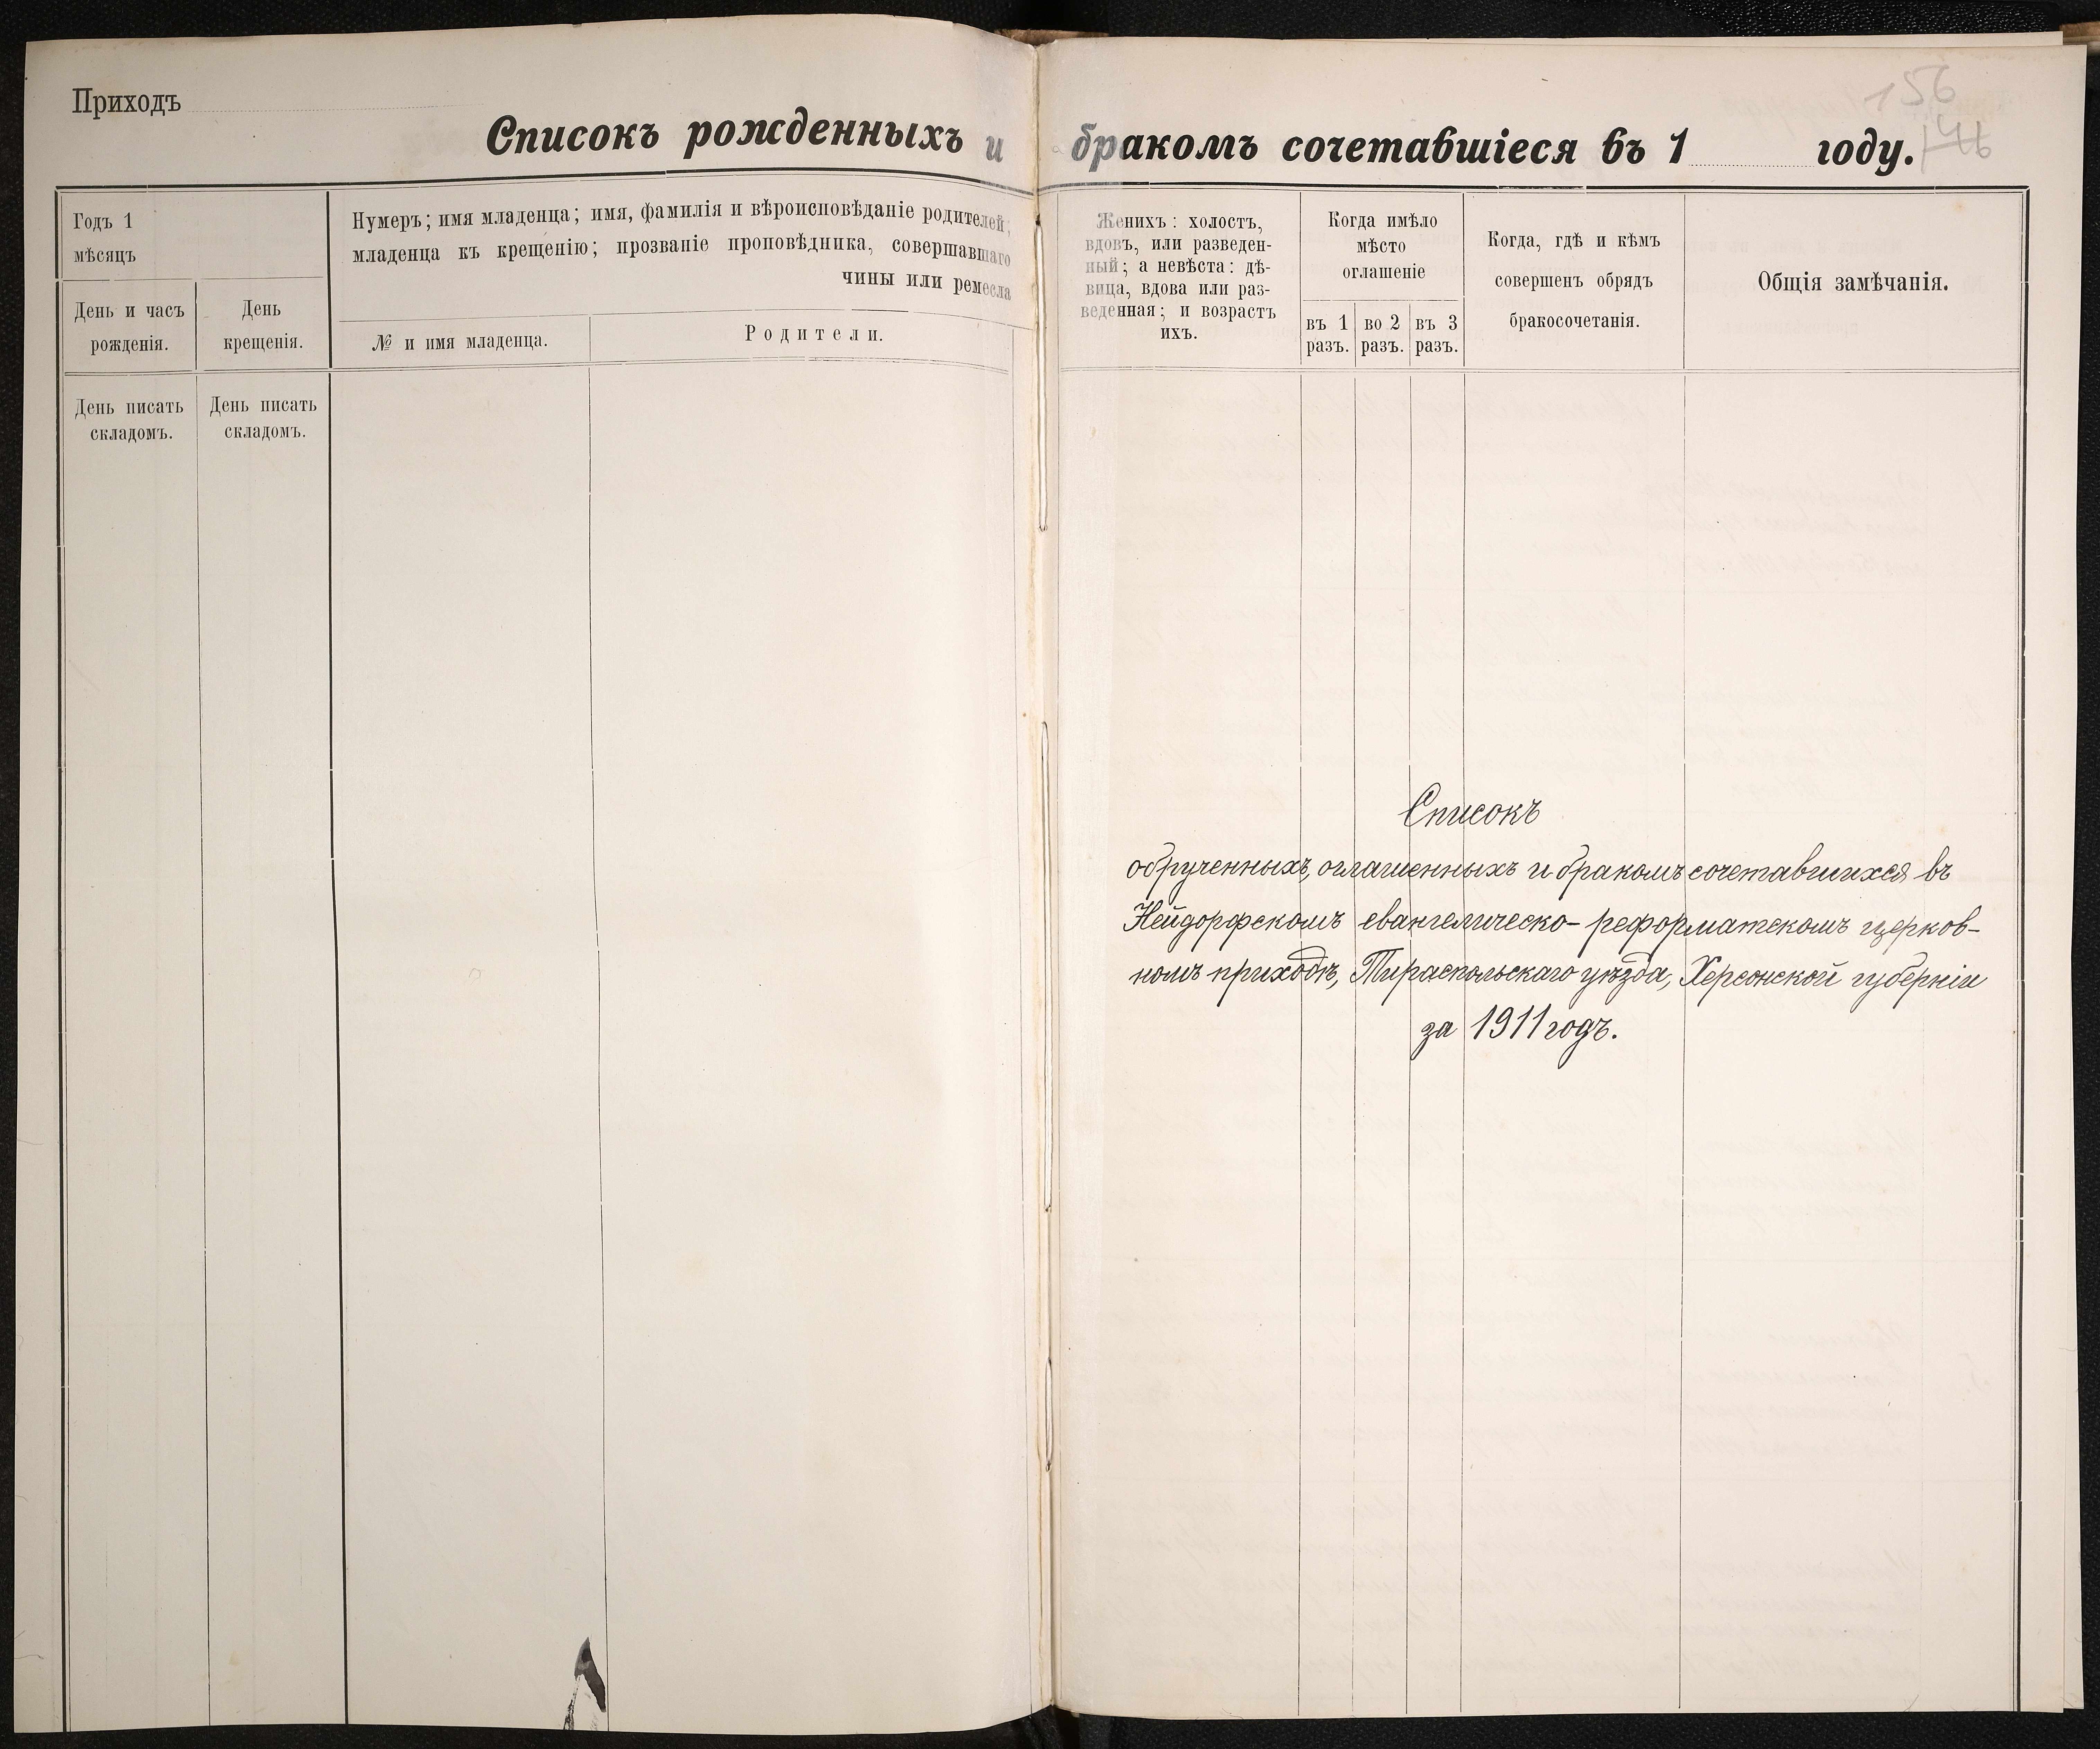 Приходъ
Списокъ рожденныхъ и
Годъ 1
мѣсяцъ
Нумеръ; имя младенца; имя, фамилія и вѣроисповѣданіе родителей;
младенца къ крещенію; прозваніе проповѣдника, совершавшаго
чины или ремесла
День и часъ
рожденія.
День
крещенія.
№ и имя младенца.
Родители.
День писать
складомъ.
День писать
складомъ.
156
146
бракомъ сочетавшіеся въ 1 году.
Женихъ: холостъ,
вдовъ, или разведен-
ный; а невѣста: дѣ-
вица, вдова или раз-
веденная; и возрастъ
ихъ.
Когда имѣло
мѣсто
оглашеніе
въ 1
разъ.
во 2
разъ.
въ 3
разъ.
Когда, гдѣ и кѣмъ
совершенъ обрядъ
бракосочетанія.
Общія замѣчанія.
Списокъ
обрученныхъ, оглашенныхъ и бракомъ сочетавшихся въ
Нейдорфскомъ евангелическо-реформатскомъ церков-
номъ приходѣ, Тираспольскаго уѣзда, Херсонской губерніи
за 1911 годъ.